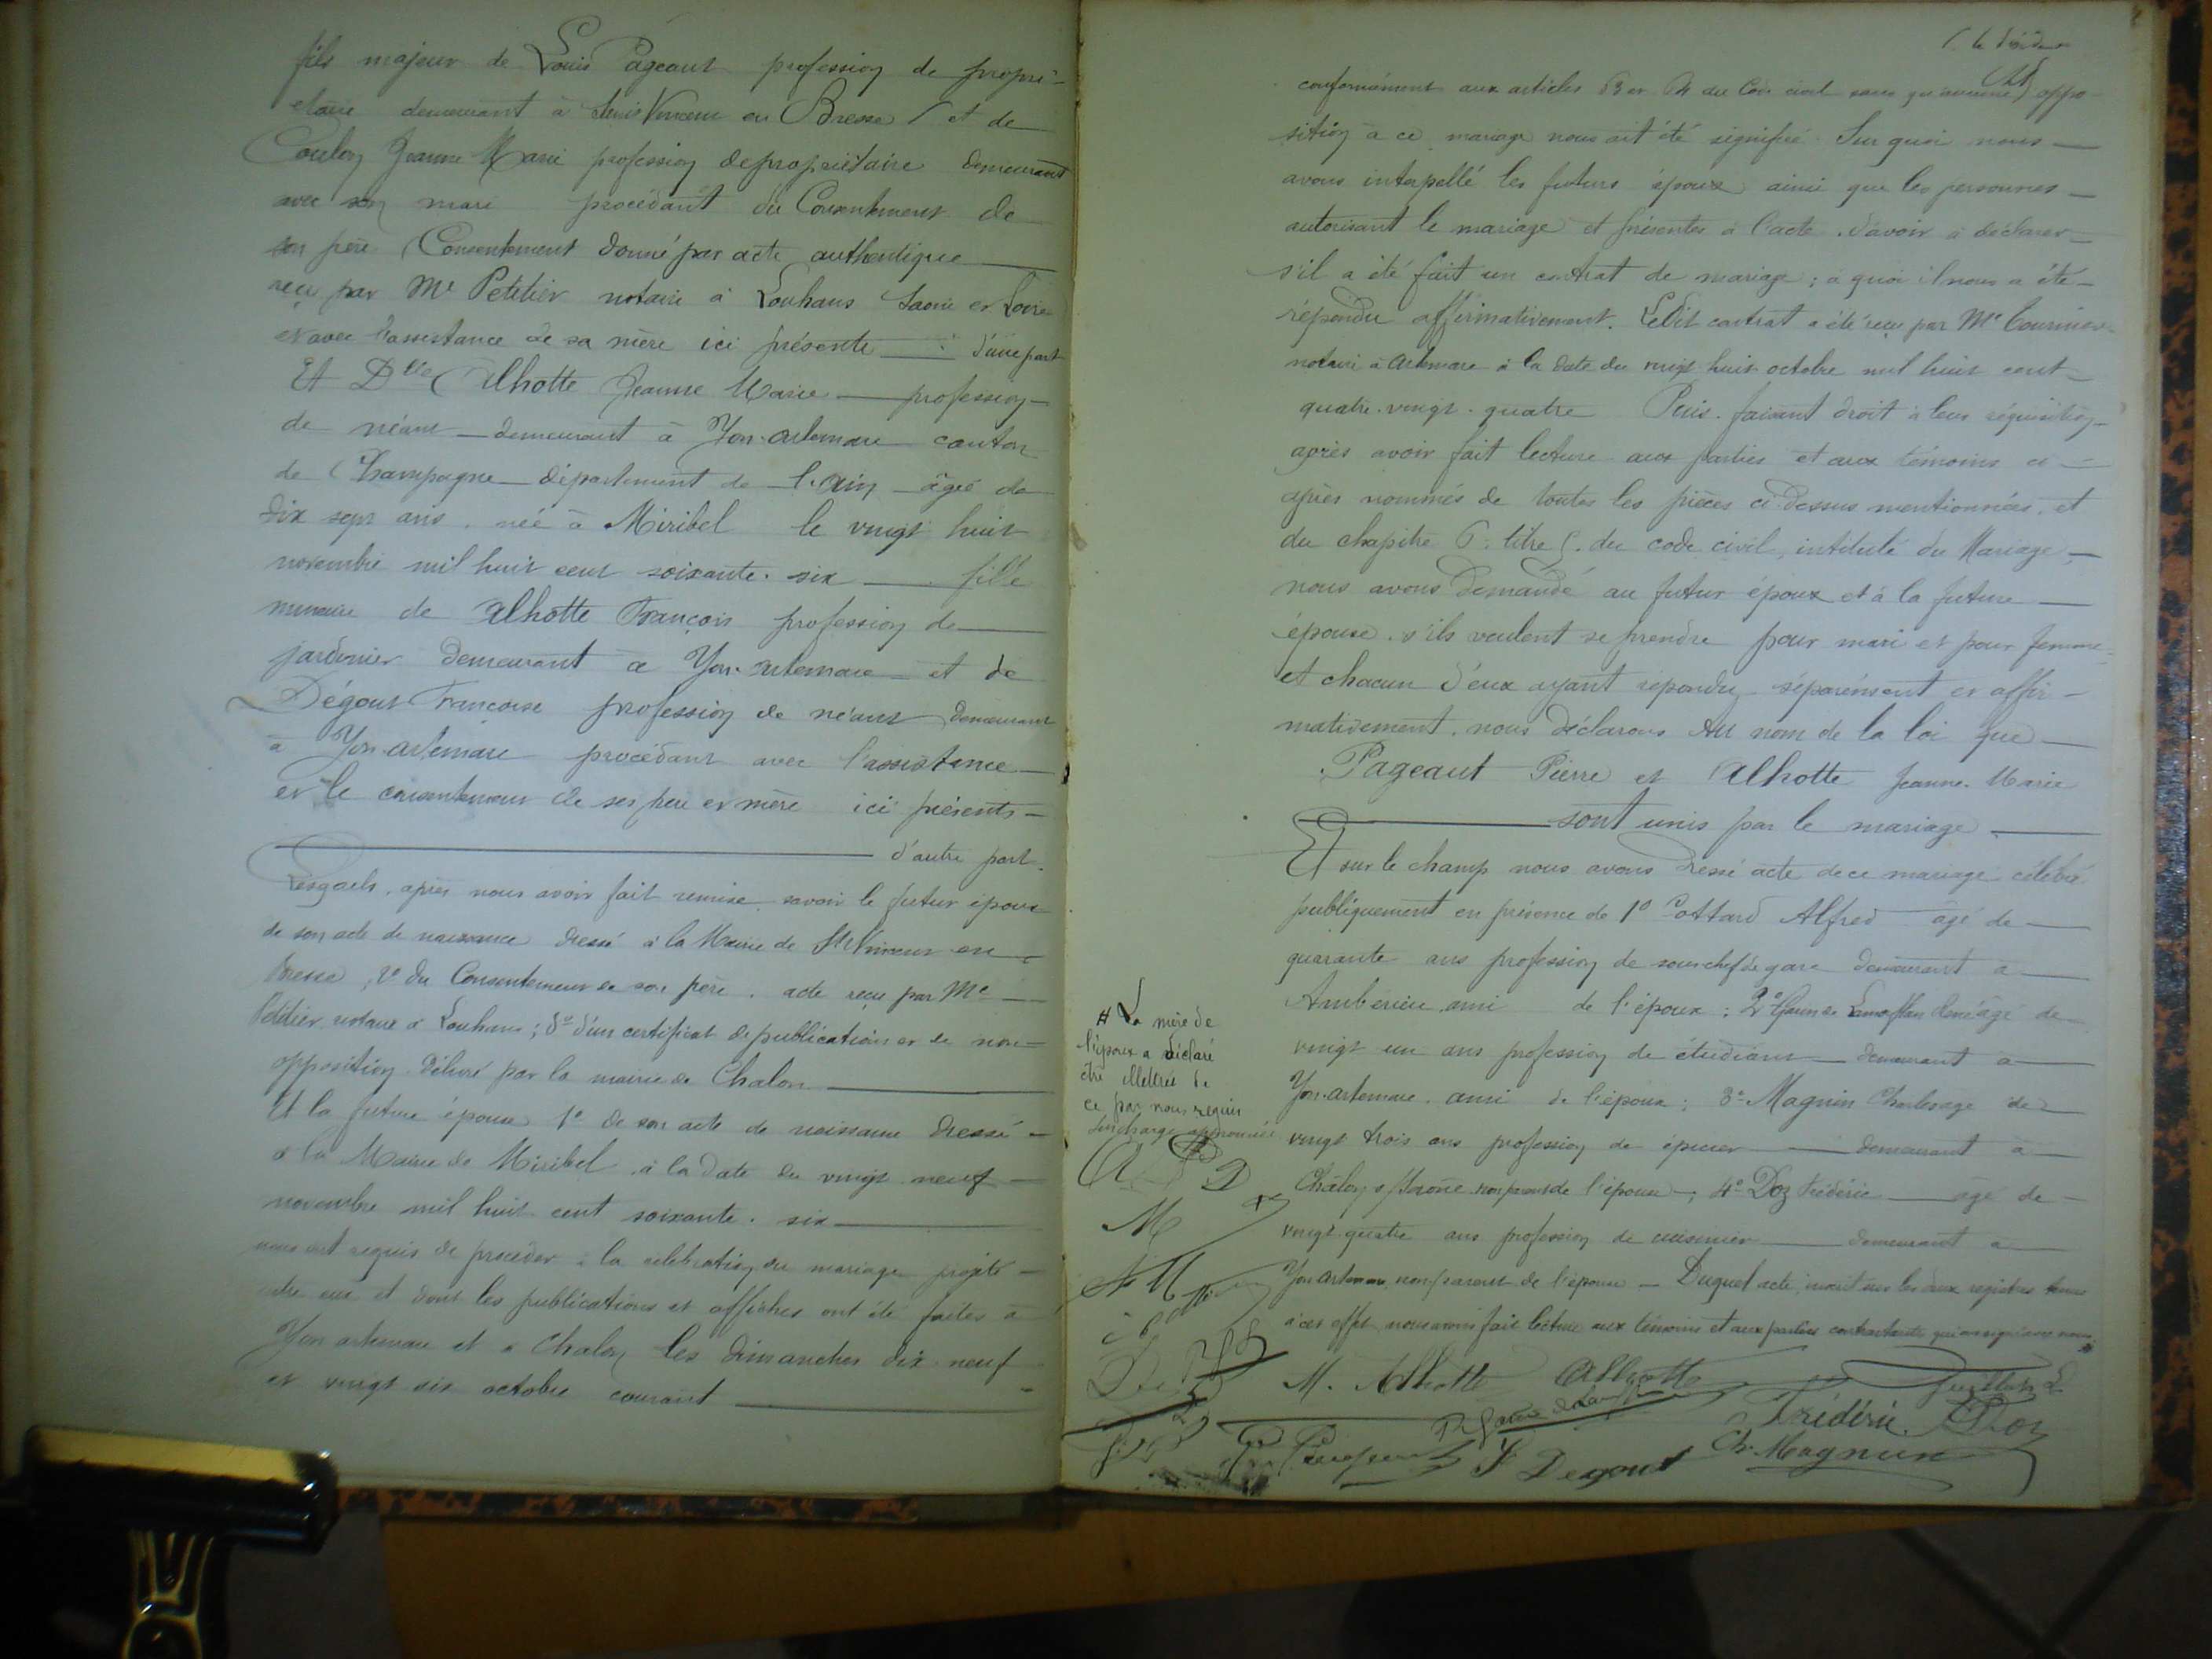 fils majeur de Louis Pageaut profession de propri-
etaire demeurant à Saint Vincent en Bresse et de
Coulon Jeanne Marie profession de propriétaire demeurant
avec son mari procédant du Consentement de
son père (Consentement donné par acte authentique
reçu par Me Petitier notaire à Louhans Saone et Loire
et avec l'assistance de sa mère ici présente d'une part
Et Dlle Alhotte Jeanne Marie profession
de néant demeurant à Yon-artemare canton
de Champagne département de l'ain âgée de
dix sept ans, née à Miribel le vingt huit
novembre mil huit cent soixante-six fille
mineure de Alhotte François profession de
jardinier demeurant à Yon-artemare et de
Dégout Françoise profession de néant demeurant
à Yon-artemare procédant avec l'assistance
et le consentement de ses père et mère ici présents
d'autre part.
Lesquels, après nous avoir fait remise savoir le futur époux
de son acte de naissance dressé à la Mairie de St Vincent en
Bresse, 2° du Consentement de son père, acte reçu par Me
Petitier notaire à Louhans; 3° d'un certificat de publication et de non-
opposition délivré par la mairie de Chalon
Et la future épouse 1° de son acte de naissance dressé
à la Mairie de Miribel à la date du vingt neuf
novembre mil huit cent soixante-six
nous ont requis de procéder à la célébration du mariage projeté
entre eux et dont les publications et affiches ont été faites à
Yon artemare et à Chalon les dimanches dix-neuf
et vingt six octobre courant
conformément aux articles 63 et 64 du Code civil sans qu'aucune oppo-
sition à ce mariage nous ait été signifié. Sur quoi nous
avons interpellé les futurs époux ainsi que les personnes
autorisant le mariage et présentes à l'acte d'avoir à déclarer
s'il a été fait un contrat de mariage; à quoi il nous a été
répondu affirmativement. Ledit contrat a été reçu par Me
notaire à Artemare à la date du vingt huit octobre mil huit cent
quatre-vingt-quatre Puis faisant droit à leur réquisition
après avoir fait lecture aux parties et aux témoins ci-
après nommés de toutes les pièces ci-dessus mentionnées, et
du chapitre 6. titre 5. du code civil, intitulé du Mariage,
nous avons demandé au futur époux et à la future
épouse s'ils veulent se prendre pour mari et pour femme
et chacun d'eux ayant répondu séparément et affir-
mativement, nous déclarons Au nom de la loi que
Pageaut Pierre et Alhotte Jeanne-Marie
sont unis par le mariage
Et sur le champ nous avons dressé acte de ce mariage célébré
publiquement en présence de 1° Cottard Alfred âgé de
quarante ans profession de sous chef de gare demeurant à
Ambérieu ami de l'époux; 2° âgé de
vingt un ans profession de étudiant demeurant à
Yon-artemare ami de l'époux; 3° Magnin Charles agé de
vingt trois ans profession de épicier demeurant à
Châlon s/Saone non parent de l'époux; 4° Doz Frédéric âgé de
vingt-quatre ans profession de cuisinier demeurant à
Yon Artemare non parent de l'époux - Duquel acte, inscrit sur les deux registres tenus
à cet effet, nous avons fait lecture aux témoins et aux parties contractantes qui ont signé avec nous
# La mère de
l'époux a déclaré
être illettrée de
ce par nous requis
Surcharge approuvée
M. Alhotte Alhotte
Frédéric Doz
F Degout Ch. Magnin